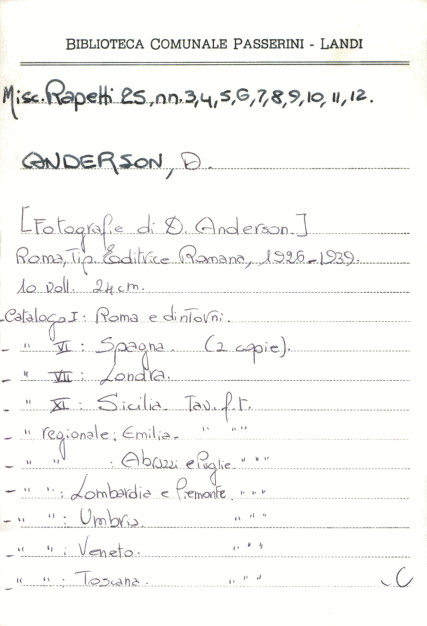 BIBLIOTECA COMUNALE PASSERINI - LANDI
Misc. Rapetti 25, nn. 3,4,5,6,7,8,9,10,11,12.
ANDERSON, D.
[Fotografie di D. Anderson.]
Roma, Tip. Editrice Romana, 1926-1939.
10 voll. 24 cm.
-Catalogo I: Roma e dintorni.
- " VI: Spagna. (2 copie).
- " VII: Londra.
- " XI: Sicilia. Tav. f.t.
- " regionale: Emilia. " " "
- " " : Abruzzi e Puglie. " " "
- " " : Lombardia e Piemonte. " " "
- " " : Umbria. " " "
- " " : Veneto. " " "
- " " : Toscana. " " "